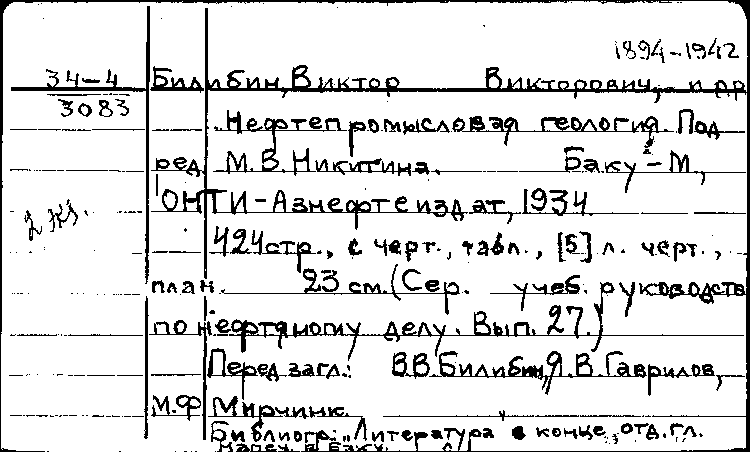 1894-1942
34-4
3083
Билибин, Виктор Викторович, и др
Нефтепромысловая геология. Под
ред. М.В. Никитина. Баку - М.,
ОНТИ - Азнефтеиздат, 1934.
2 кз.
424 стр., с черт., табл., [5] л. черт.,
план. 23 см. (Сер. учеб. руководств
по нефтяному делу. Вып. 27.)
Перед загл.: В.В. Билибин, Я.В. Гаврилов,
М.Ф. Мирчинк.
Библиогр.: "Литература" в конце отд. гл.